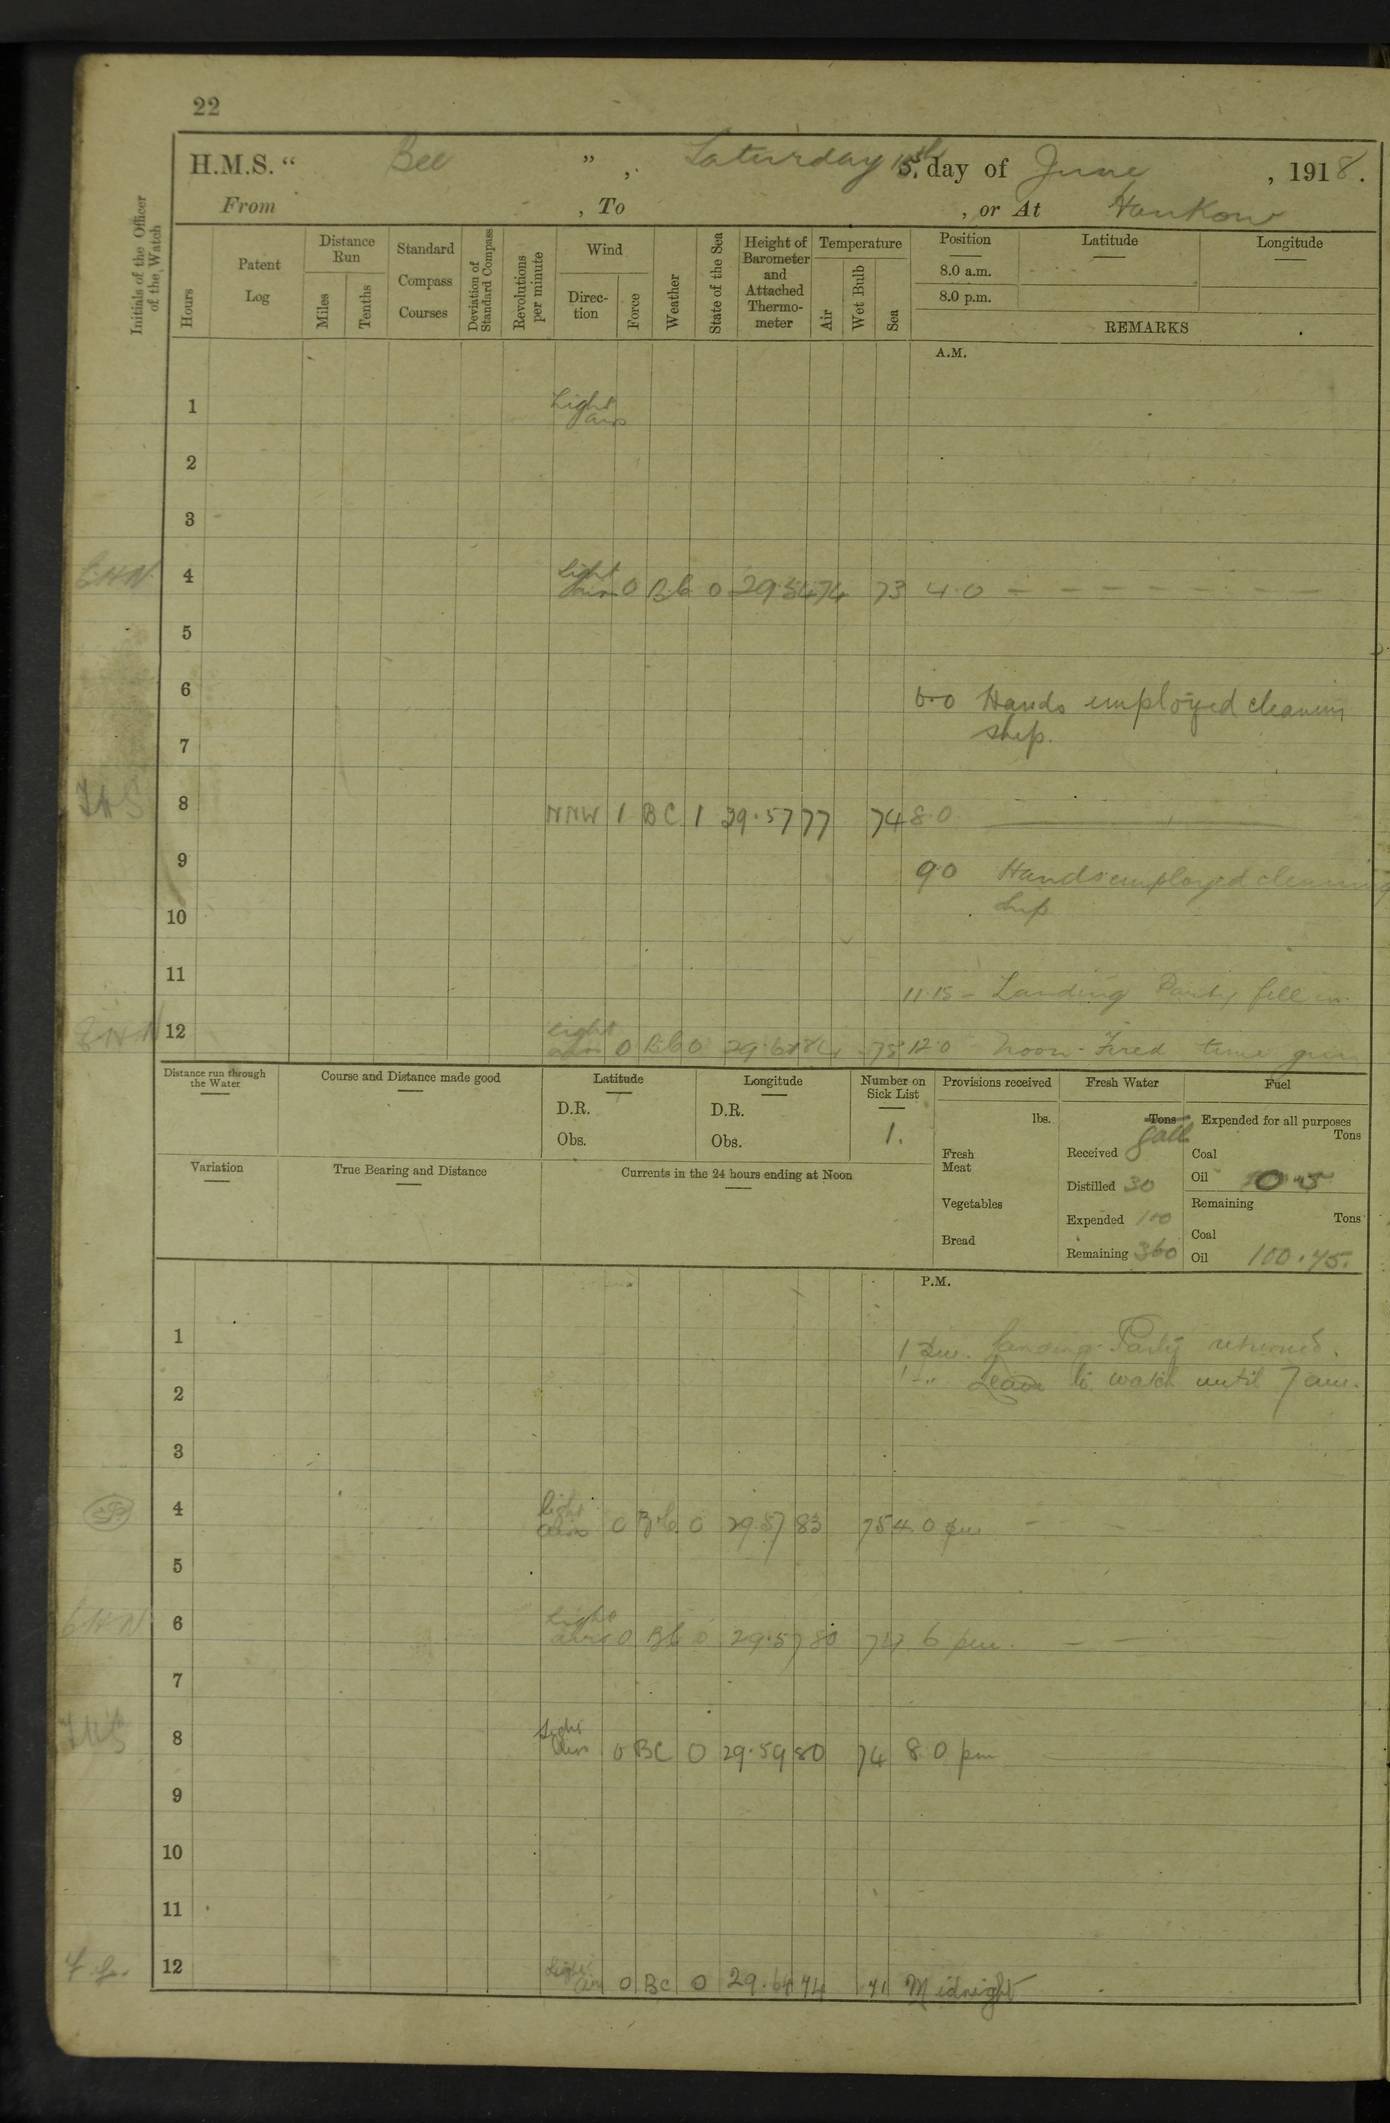 22
H.M.S. “ Bee ” , Saturday 15th day of June , 1918.
From , To , or At Hankow
Initials of the Officer of the Watch
Hours
Patent Log
Distance Run
Miles
Tenths
Standard Compass Courses
Deviation of Standard Compass
Revolutions per minute
Wind
Direction
Force
Weather
State of the Sea
Height of Barometer and Attached Thermometer
Temperature
Air
Wet Bulb
Sea
Position
8.0 a.m.
8.0 p.m.
Latitude
Longitude
REMARKS
A.M.
1 Light airs
2
3
4 Light airs 0 B.C. 0 29.54 74 73 4.0 — — — — — — —
5
6 6.0 Hands employed cleaning
ship.
7
8 NNW 1 BC 1 29.57 77 74 8.0
9 9.0 Hands employed cleaning
ship
10
11 11.15 – Landing Party fell in.
12 Light airs 0 B.C. 0 84 75 12.0 Noon - Fired time gun
Distance run through the Water
Course and Distance made good
Latitude
D.R.
Obs.
Longitude
D.R.
Obs.
Number on Sick List
1.
Provisions received
lbs.
Fresh Meat
Vegetables
Bread
Fresh Water
Tons
Galls
Received
Distilled 30
Expended 100
Remaining 360
Fuel
Expended for all purposes
Tons
Coal
Oil 0.5
Remaining
Tons
Coal
Oil 100.45.
Variation
True Bearing and Distance
Currents in the 24 hours ending at Noon
P.M.
1 1 pm. Landing Party returned.
Leave to watch until 7 am.
2
3
4 Light airs 0 B.C. 0 29.57 83 75 4.0 pm — — —
5
6 Light airs 0 BC 0 29.57 80 74 6 pm. — —
7
8 Light airs 0 BC 0 29.59 80 74 8.0 pm
9
10
11
12 Light airs 0 BC 0 29.64 74 71 Midnight